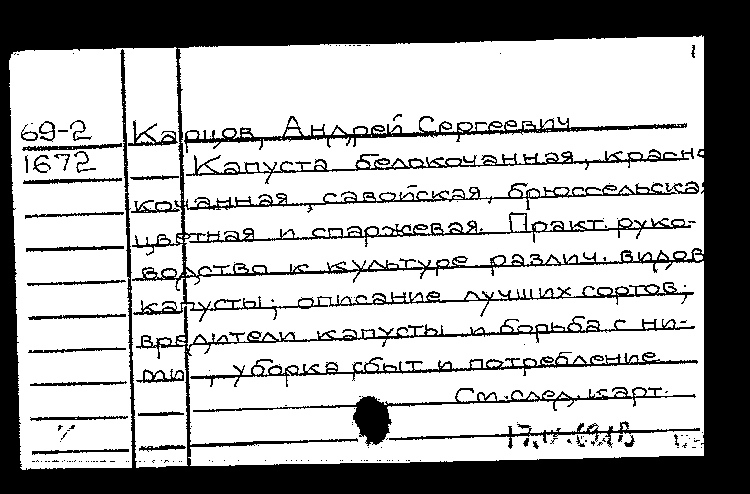 1
69-2 Карцов, Андрей Сергеевич
1672 Капуста белокочанная, красно
кочанная, савойская, брюссельская
цветная и спаржевая. Практ. руко-
водство к культуре различ. видов
капусты; описание лучших сортов;
вредители капусты и борьба с ни-
ми, уборка сбыт и потребление
См. след. карт.